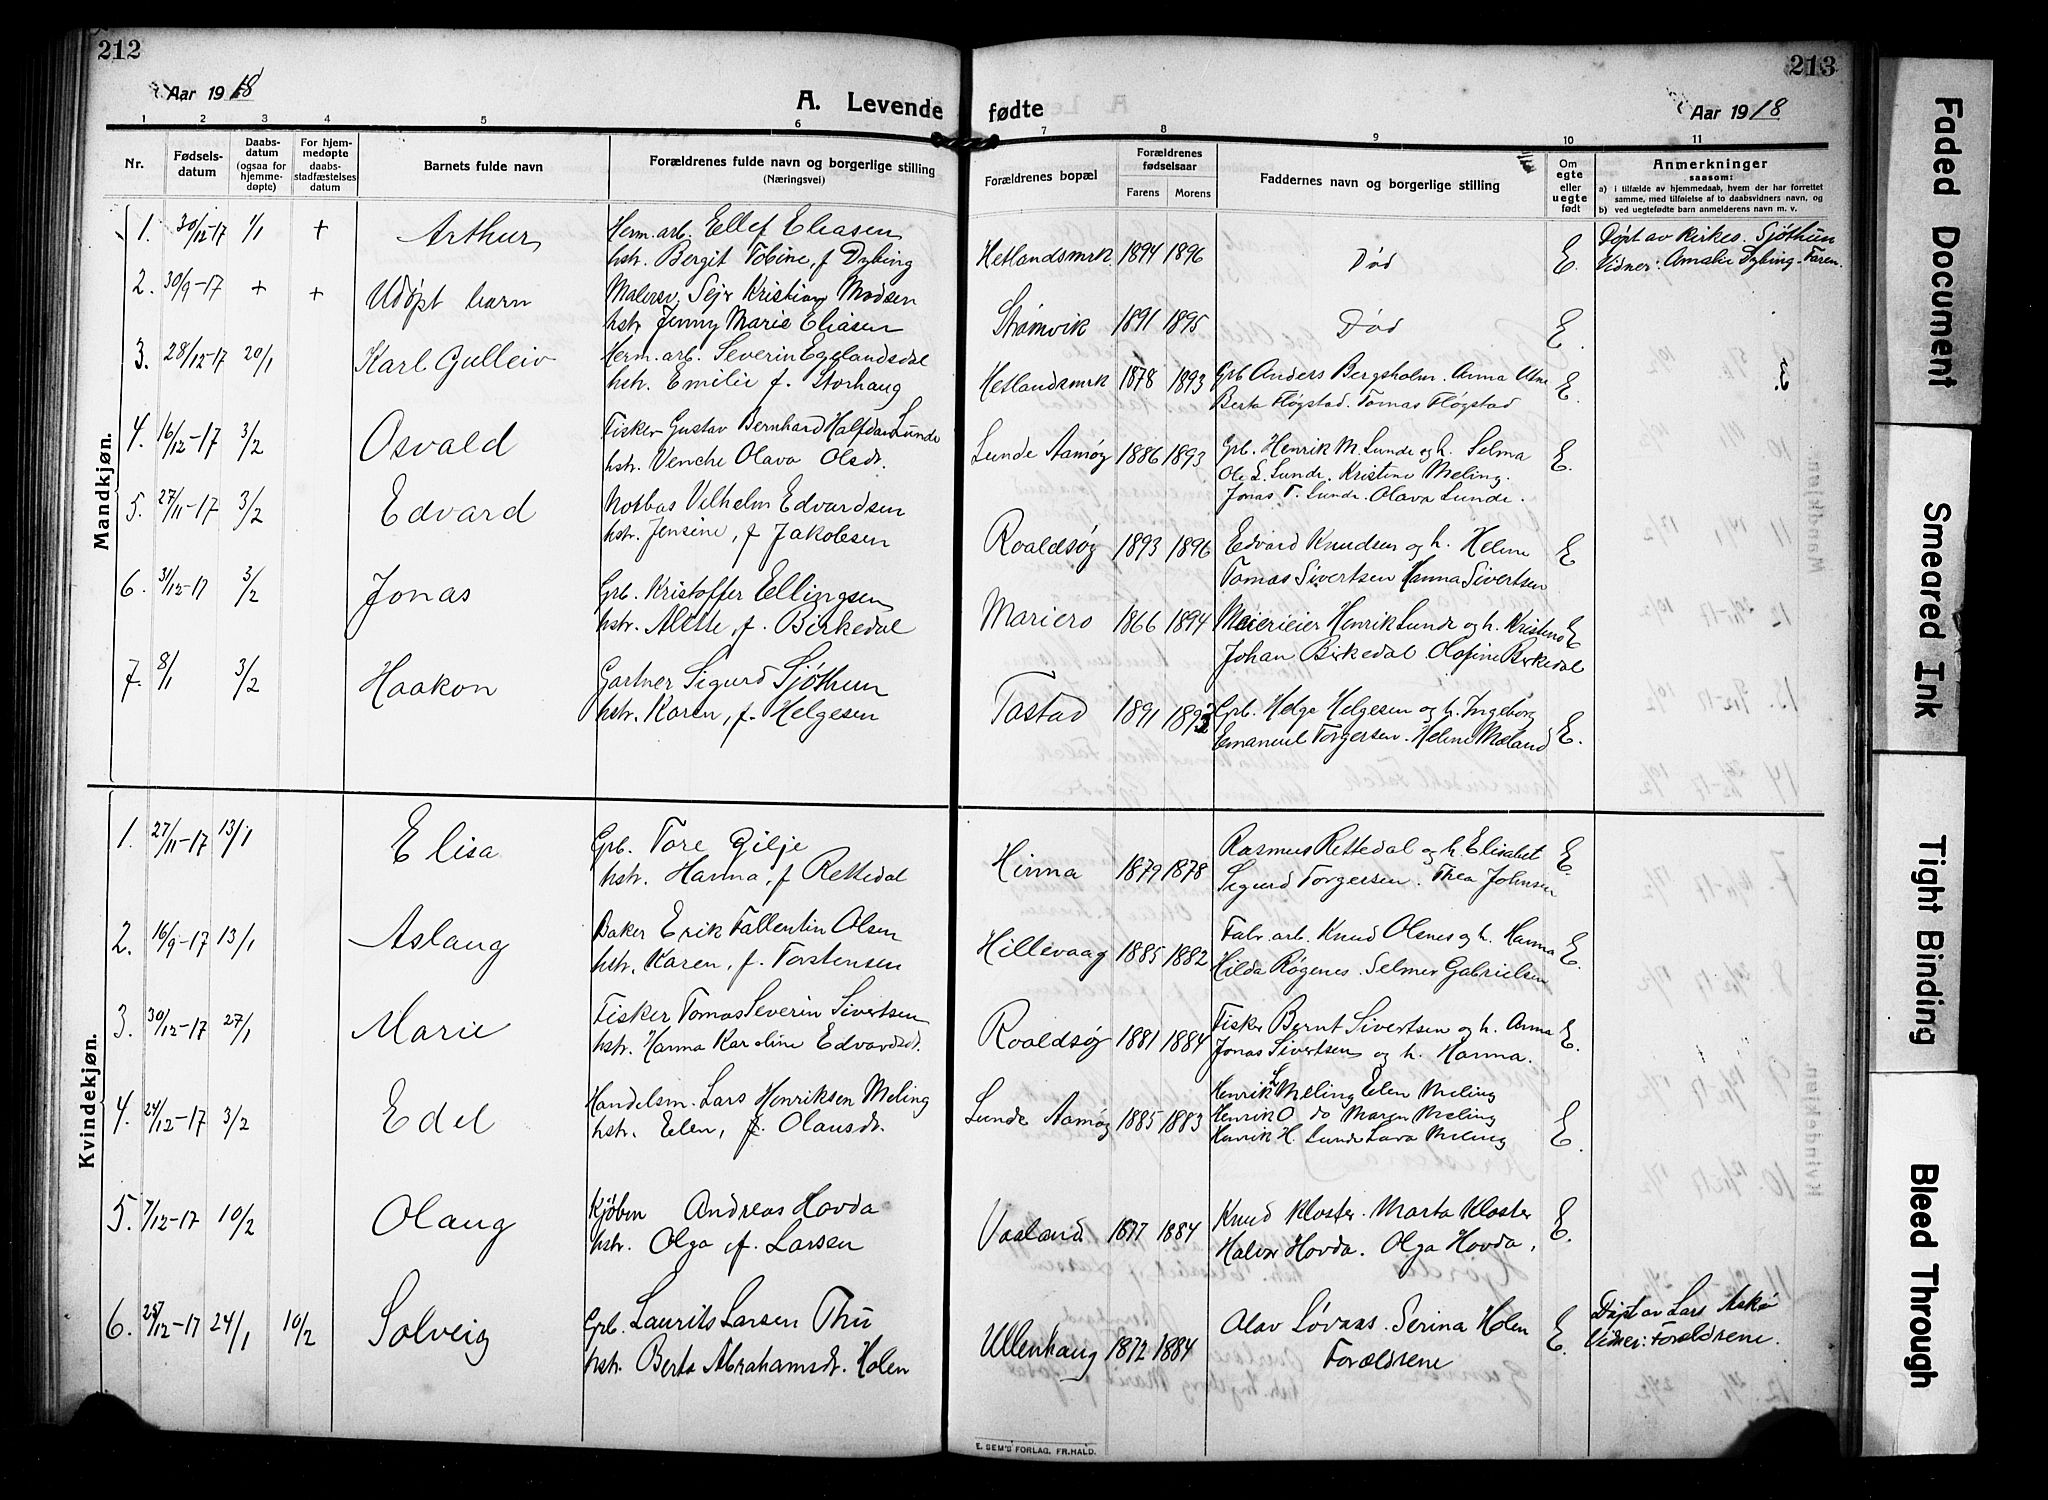 212
213
Aar 1918
A. Levende fødte
Aar 1918
1 2 3 4 5 6 7 8 9 10 11
Nr.
Fødsels-datum
Daabs-datum (ogsaa for hjemme-døpte)
For hjem-medøpte daabs-stadfæstelses datum
Barnets fulde navn
Forældrenes fulde navn og borgerlige stilling
(Næringsvei)
Forældrenes bopæl
Forældrenes fødselsaar
Farens Morens
Faddernes navn og borgerlige stilling
Om egte eller uegte født
Anmerkninger
saasom:
a) i tilfælde av hjemmedaab, hvem der har forrettet samme, med tilføielse av to daabsvidners navn, og
b) ved uegtefødte barn anmelderens navn m. v.
Mandkjøn.
1. 30/12-17 1/1 + Arthur Herm. arb. Ellef Eliasen
hstr. Bergit Tobine, f. Dybing Hetlandsmrk. 1894 1896 Død E. Døpt av Kirkes. Sjøthun
Vidner: Amalie Dybing - Faren.
2. 30/9-17 + + Udøpt barn Malersv. Sejr Kristian Madsen
hstr. Jenny Marie Eliasen Strømvik 1891 1895 Død E.
3. 28/12-17 20/1 Karl Gulleiv Herm. arb. Severin Egelandsdal
hstr. Emilie f. Storhaug Hetlandsmrk 1878 1893 Grb Anders Bergsholm. Anna Utne
Berta Fløgstad. Tomas Fløgstad E.
4. 16/12-17 3/2 Osvald Fisker Gustav Bernhard Halfdan Lunde
hstr. Venche Olava Olsdr. Lunde Aamøy 1886 1893 Grb. Henrik M. Lunde og h. Selma
Ole L. Lunde, Kristine Meling.
Jonas T. Lunde. Olava Lunde. E.
5. 27/11-17 3/2 Edvard Notbas Vilhelm Edvardsen
hstr. Jensine, f. Jakobsen Roaldsøy 1893 1896 Edvard Knudsen og h. Helene
Tomas Sivertsen Hanna Sivertsen E
6. 31/12-17 3/2 Jonas Grb. Kristoffer Ellingsen
hstr. Alette, f. Birkedal Mariero 1866 1894 Meierieier Henrik Lunde og h. Kristine
Johan Birkedal. Olofine Birkedal E
7. 8/1 3/2 Haakon Gartner Sigurd Sjøthun
hstr. Karen, f. Helgesen Tastad 1891 1893 Grb. Helge Helgesen og h. Ingeborg
Emanuel Torgersen. Helene Mæland E.
Kvindekjøn.
1. 27/11-17 13/1 Elisa Grb. Tore Gilje
hstr. Hanna, f Rettedal Hinna 1879 1878 Rasmus Rettedal og h. Elisabet
Sigurd Torgersen. Thea Johnsen E.
2. 16/9-17 13/1 Aslaug Baker Erik Fallentin Olsen
hstr. Karen, f. Torstensen Hillevaag 1885 1882 Fabr. arb. Knud Olsnes og h. Hanna
Hilda Røgenes. Selmer Gabrielsen E.
3. 30/12-17 27/1 Marie Fisker Tomas Severin Sivertsen
hstr. Hanna Karoline Edvardsdr. Roaldsøy 1881 1884 Fisker Bernt Sivertsen og h. Anna
Jonas Sivertsen og h. Hanna. E.
4. 24/12-17 3/2 Edel Handelsm. Lars Henriksen Meling
hstr. Elen, f. Olausdr. Lunde Aamøy 1885 1883 Henrik L Meling Elen Meling
Henrik O do Maren Meling
Henrik H. Lunde Lava Meling E.
5. 7/12-17 10/2 Olaug Kjøbm Andreas Hovda
hstr. Olga f. Larsen Vaaland 1877 1884 Knud Kloster. Marta Kloster
Halvor Hovda. Olga Hovda. E.
6. 25/12-17 24/1 10/2 Solveig Grb. Laurits Larsen Thu
hstr. Berta Abrahamsdr. Holen Ullenhaug 1872 1884 Olav Løvaas. Serina Holen
Forældrene E. Døpt av Lars Askø
Vidner: Forældrene.
E. SEM'S FORLAG, FR.HALD.
Faded Document
Smeared Ink
Tight Binding
Bleed Through